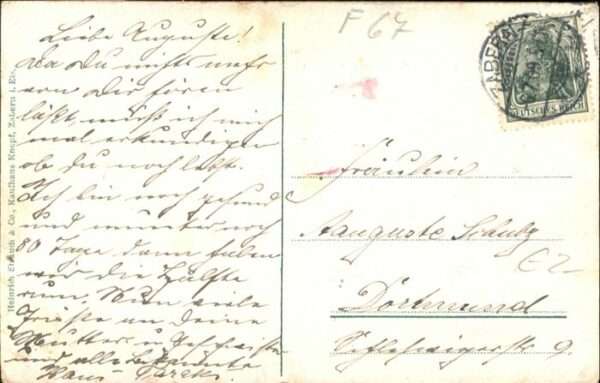 Liebe Auguste!
Da Du nichts mehr
von Dir hören
läßt, muß ich mich
mal erkundigen
ob du noch lebst.
Ich bin noch gesund
und munter noch
80 Tage, dann haben
wir die Hälfte
rum. Nun viele
Grüße an deine
Mutter u. Geschwister
und alle bekannte
Hans
F 67
ZABERN
DEUTSCHES REICH
Fräulein
Auguste Schulz
Dortmund
Schleswigerstr 9.
Heinrich & Co., Kaufhaus Knopf, Zabern i. Els.